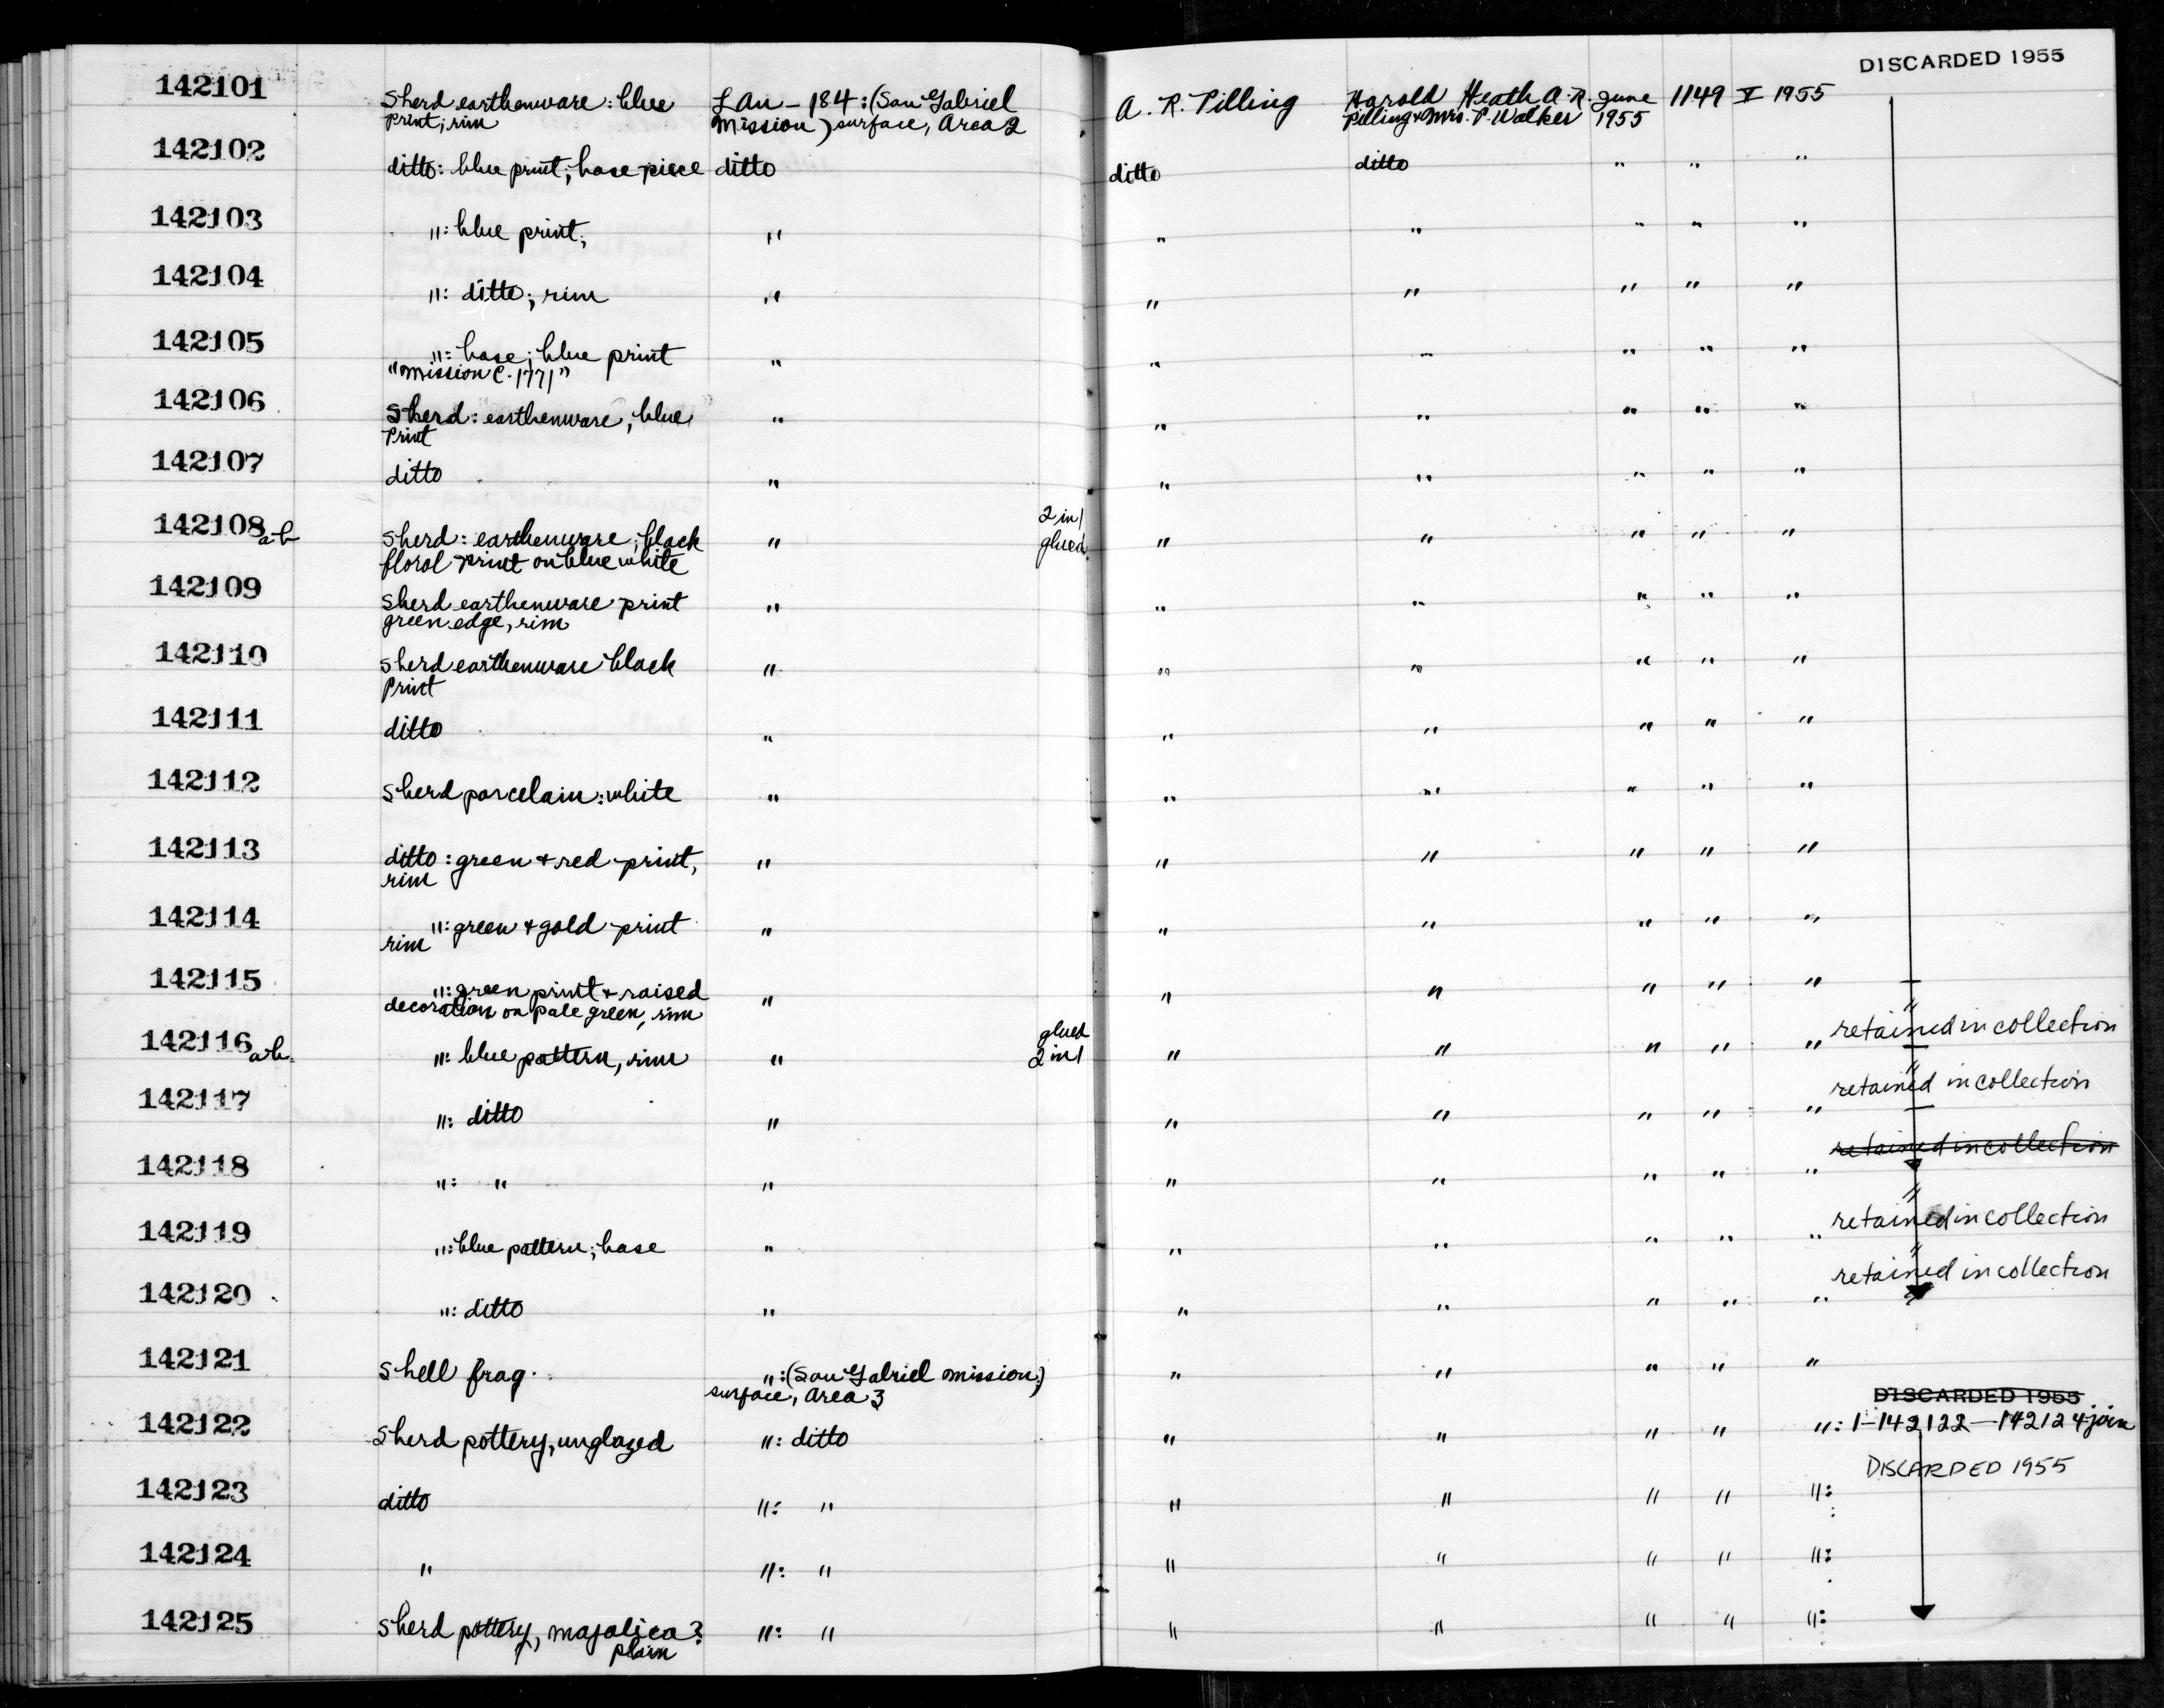 DISCARDED 1955
142101 Sherd earthenware: blue LAn-184: (San Gabriel A. R. Pilling Harold Heath A. R. June 1149 V 1955
print; rim Mission) surface, Area 2 Pilling & Mrs. P. Walker 1955
142102 ditto: blue print; base piece ditto ditto ditto " " "
142103 ": blue print; " " " " " "
142104 ": ditto; rim " " " " " "
142105 ": base; blue print " " " " " "
"Mission C. 1771"
142106 Sherd: earthenware, blue " " " " " "
Print
142107 ditto " " " " " "
142108 a-b Sherd: earthenware; black " 2 in 1 " " " " "
floral print on blue white glued
142109 Sherd earthenware print " " " " " "
green edge, rim
142110 Sherd earthenware black " " " " " "
Print
142111 ditto " " " " " "
142112 Sherd porcelain: white " " " " " "
142113 ditto: green & red print, " " " " " "
rim
142114 ": green & gold print " " " " " "
rim
142115 ": green print & raised " " " " " "
decoration on pale green, rim "
retained in collection
142116 a-b. ": blue pattern, rim " glued " " " " "
2 in 1 "
retained in collection
142117 ": ditto " " " " " "
retained in collection
142118 ": " " " " " " "
"
retained in collection
142119 ": blue pattern; base " " " " " "
"
retained in collection
142120 ": ditto " " " " " "
142121 Shell frag. ": (San Gabriel Mission;) " " " " "
surface, Area 3
DISCARDED 1955
142122 Sherd pottery, unglazed ": ditto " " " " ": 1-142122-142124 join
DISCARDED 1955
142123 ditto ": " " " " " ":
142124 " ": " " " " " ":
142125 Sherd pottery, majolica? ": " " " " " ":
plain